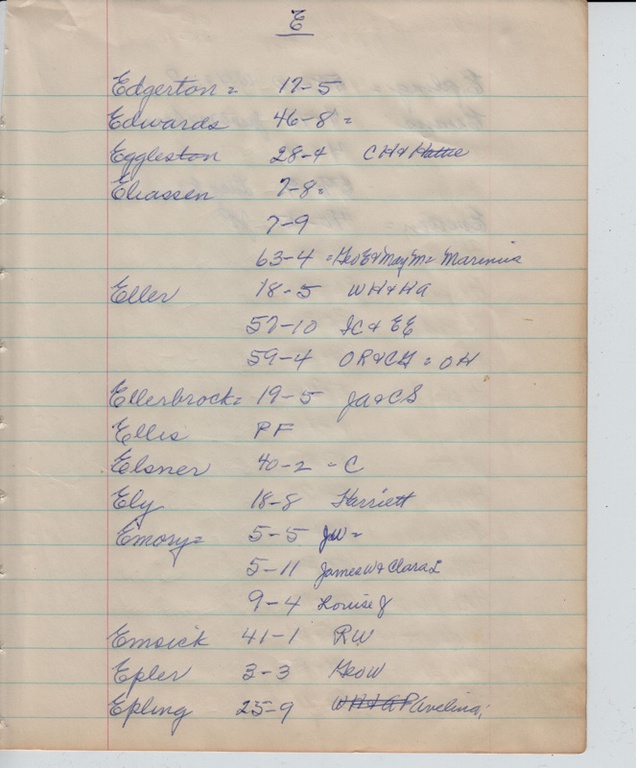 E
Edgerton = 17-5
Edwards 46-8 =
Eggleston 28-4 CH & Hattie
Eliassen 7-8 =
7-9
63-4 = Geo E & May M = Marinus
Eller 18-5 WH & HA
57-10 IC & EE
59-4 OR & CG = OH
Ellerbrock = 19-5 JA & CS
Ellis PF
Elsner 40-2 = C
Ely 18-8 Harriett
Emory = 5-5 JW =
5-11 James W & Clara L
9-4 Louise J
Emsick 41-1 RW
Epler 3-3 Geo W
Epling 25-9 WH & AP Avelina